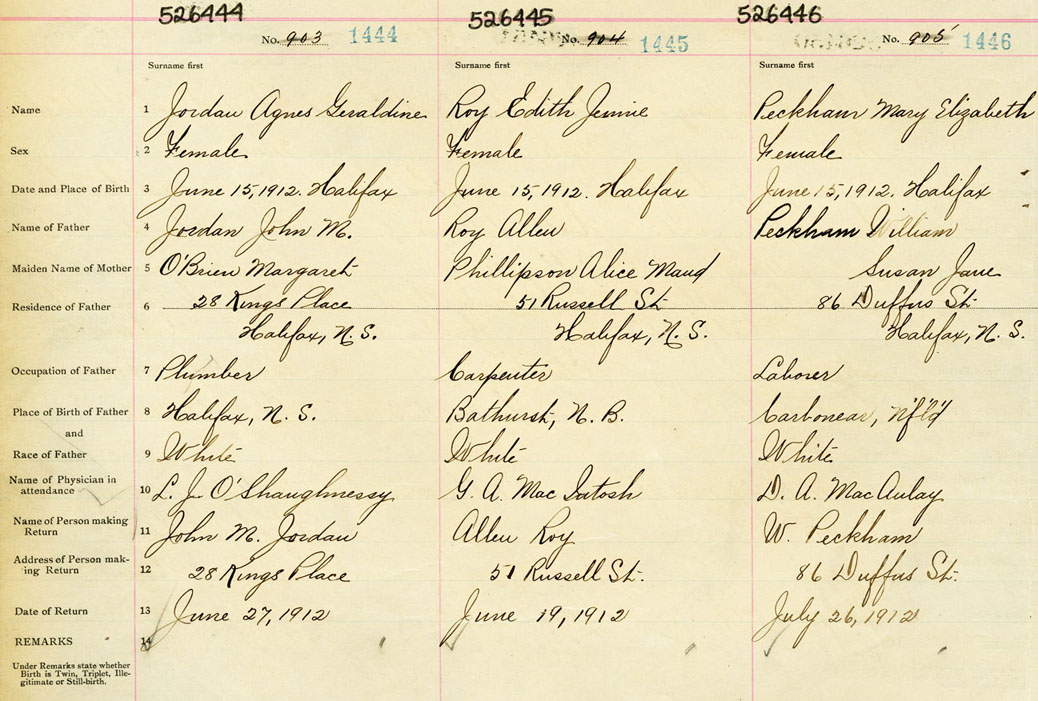 526444 526445 526446
No. 903 1444 No. 904 1445 No. 905 1446
Surname first Surname first Surname first
Name 1 Jordan Agnes Geraldine Roy Edith Jennie Peckham Mary Elizabeth
Sex 2 Female Female Female
Date and Place of Birth 3 June 15, 1912. Halifax June 15, 1912. Halifax June 15, 1912. Halifax
Name of Father 4 Jordan John M. Roy Allen Peckham William
Maiden Name of Mother 5 O'Brien Margaret Phillipson Alice Maud Susan Jane
Residence of Father 6 28 Kings Place 51 Russell St. 86 Duffus St.
Halifax, N. S. Halifax, N. S. Halifax, N. S.
Occupation of Father 7 Plumber Carpenter Laborer
Place of Birth of Father 8 Halifax, N. S. Bathurst, N. B. Carbonear, Nf'l'd
and
Race of Father 9 White White White
Name of Physician in
attendance 10 L. J. O'Shaughnessy G. A. Mac Intosh D. A. MacAulay
Name of Person making
Return 11 John M. Jordan Allen Roy W. Peckham
Address of Person mak-
ing Return 12 28 Kings Place 51 Russell St. 86 Duffus St.
Date of Return 13 June 27, 1912 June 19, 1912 July 26, 1912
REMARKS 14
Under Remarks state whether
Birth is Twin, Triplet, Ille-
gitimate or Still-birth.